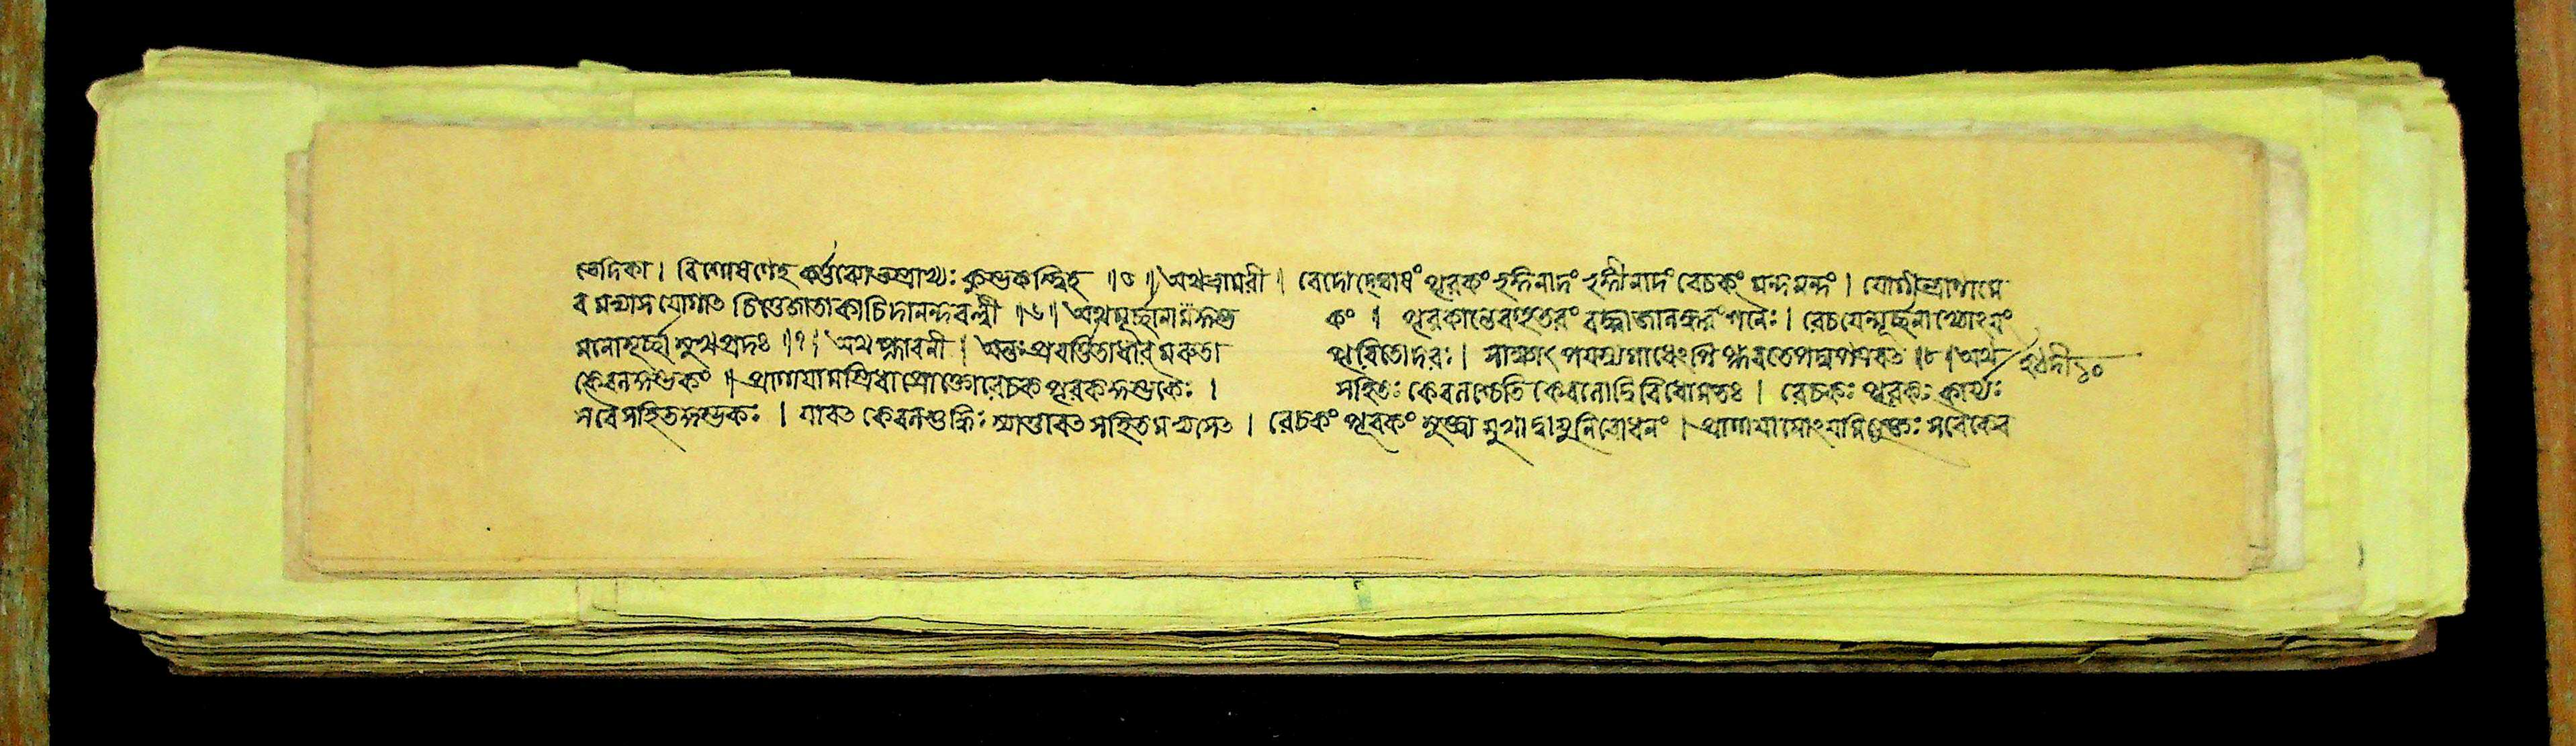 ভেদিকা । বিশেষণেহ কর্ত্তব্যোভস্ত্রাখ্যঃ কুম্ভকস্ত্বিহ ॥৫॥ অথভ্রামরী । বেদোদ্ঘোষং পূরকং ভৃঙ্গিনাদং ভৃঙ্গীনাদং রেচকং মন্দমন্দং । যোগীন্দ্রাণামে
ব মভ্যাস যোগাত চিত্তেজাতাকাচিদানন্দবল্লী ॥৬॥ অথমূর্চ্ছানামকুম্ভ কং । পূরকান্তেবহুতরং বদ্ধ্বাজালন্ধরং শনৈঃ । রেচয়েন্মূর্চ্ছনাখ্যোঽয়ং
মনোমূর্চ্ছা সুখপ্রদঃ ॥৭॥ অথ প্লাবনী । অন্তঃপ্রবর্ত্তিতাধার মরুতা পূরিতোদরঃ । সাক্ষাৎ পয়স্যগাধেঽপি প্লবতেপদ্মপত্রবত ॥৮॥ অথ হঠদী১০
কেবলকুম্ভকং ॥ প্রাণায়ামস্ত্রিধা প্রোক্তোরেচক পূরককুম্ভকৈঃ । সহিতঃ কেবলশ্চেতি কেবলোদ্বিবিধোমতঃ । রেচকঃ পূরকঃ কার্য্যঃ
সবৈসহিতকুম্ভকঃ । যাবত কেবলশুদ্ধিঃ স্যাত্তাবত সহিতমভ্যসেত । রেচকং পূরকং মুক্ত্বা সুখাদ্বায়ুনিরোধনং । প্রাণায়ামোঽয়মিত্যুক্তঃ সবৈকেব